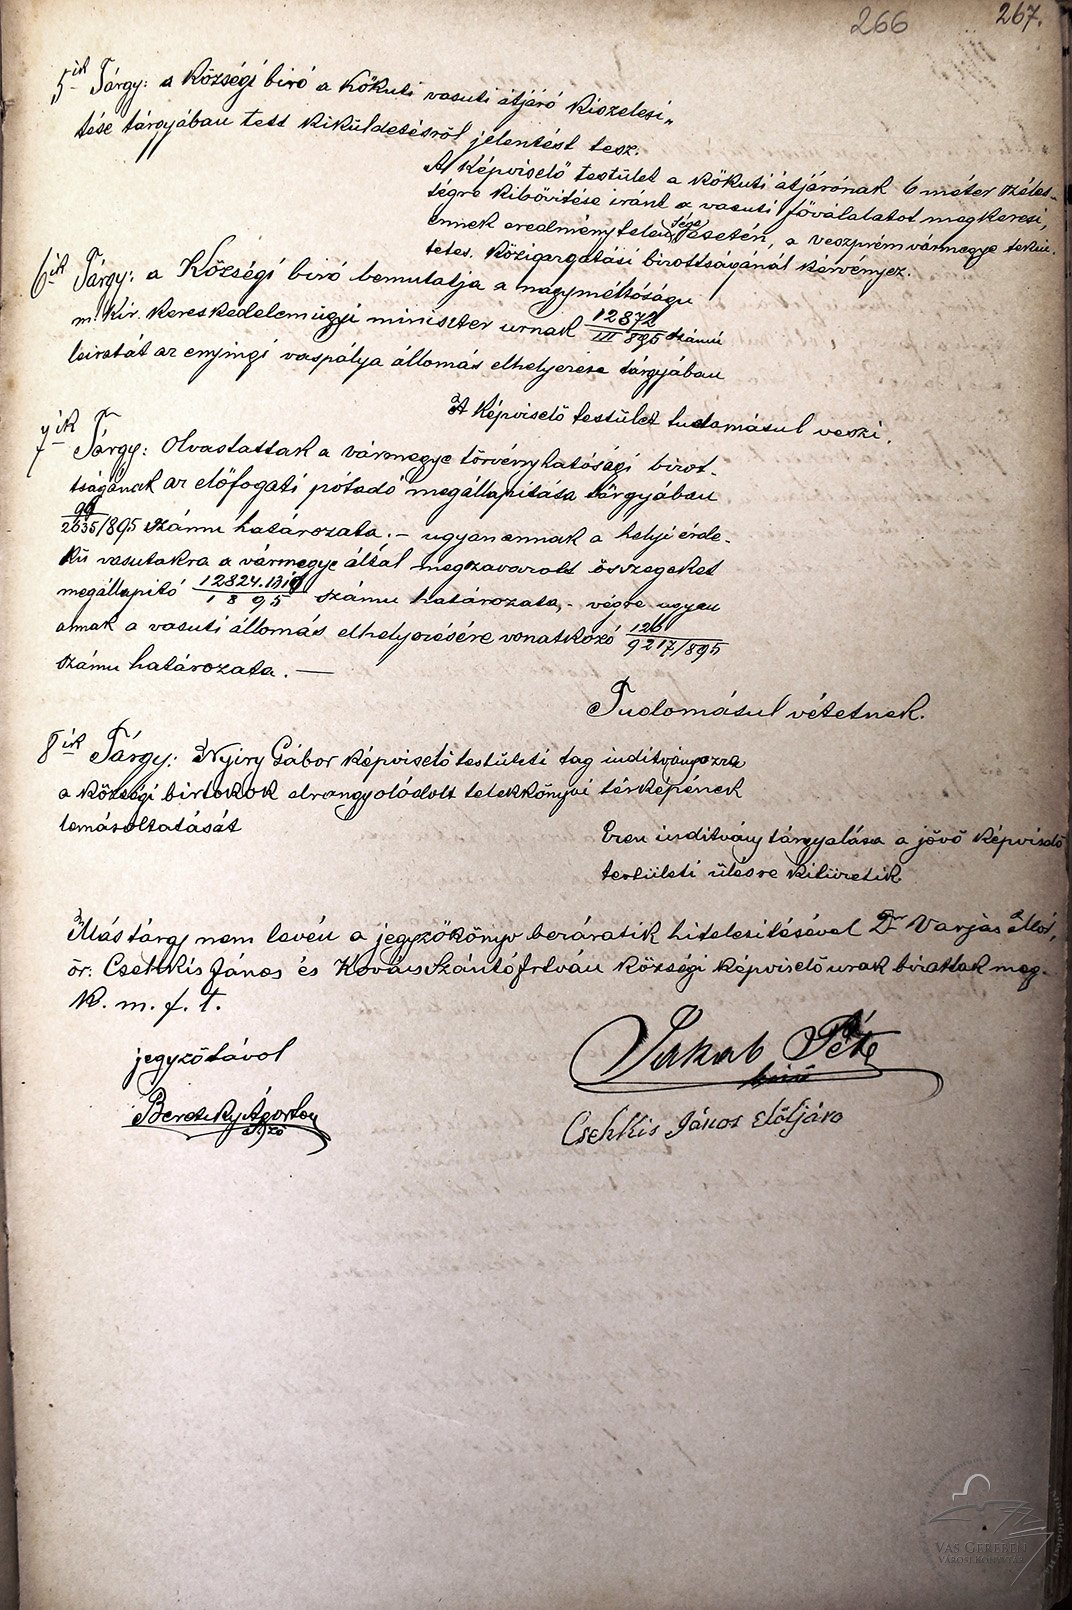 266
267.
5-ik Tárgy: a Községi biró a Kőkuti vasuti átjáró kiszelesi„
tése tárgyában tett kiküldetésről jelentést tesz.
A Képviselő testület a kőkuti átjárónak 6 méter széles-
ségre kibővitése iránt a vasuti fővállalatot megkeresi,
ennek eredménytelensége esetén, a veszprémvármegye tekin-
tetes. Közigazgatási bizottságánál kérvényez.
6-ik Tárgy: a Községi biró bemutatja a nagyméltóságu
m. kir. kereskedelemügyi miniszter urnak 12872/III 895 számu
leiratát az enyingi vaspálya állomás elhelyezése tárgyában
A Képviselő testület tudomásul veszi.
7-ik Tárgy: Olvastattak a vármegye törvényhatósági bizot-
tságának az előfogati pótadó megállapitása tárgyában
99/2635/895 számu határozata. – ugyan annak a helyi érde-
kü vasutakra a vármegye által megszavazott összegeket
megállapitó 12824.131/1895 számu határozata, - végre ugyan
annak a vasuti állomás elhelyezésére vonatkozó 126/9217/895
számu határozata. —
Tudomásul vétetnek.
8-ik Tárgy: Nyiry Gábor képviselő testületi tag inditványozza
a községi birtokok elrongyolódott telekkönyvi térképének
lemásoltatását
Ezen inditvány tárgyalása a jövő képviselő
testületi ülésre kitüzetik.
Más tárgy nem levén a jegyzőkönyv bezáratik hitelesitésével Dr Varjas Mór,
ör. Csehkis János és Kovács Szántó István községi képviselő urak bizattak meg.
K. m. f. t.
jegyző távol
Jakab Péter
biró
Csehkis János Elöljáro
VAS GEREBEN
VÁROSI KÖNYVTÁR